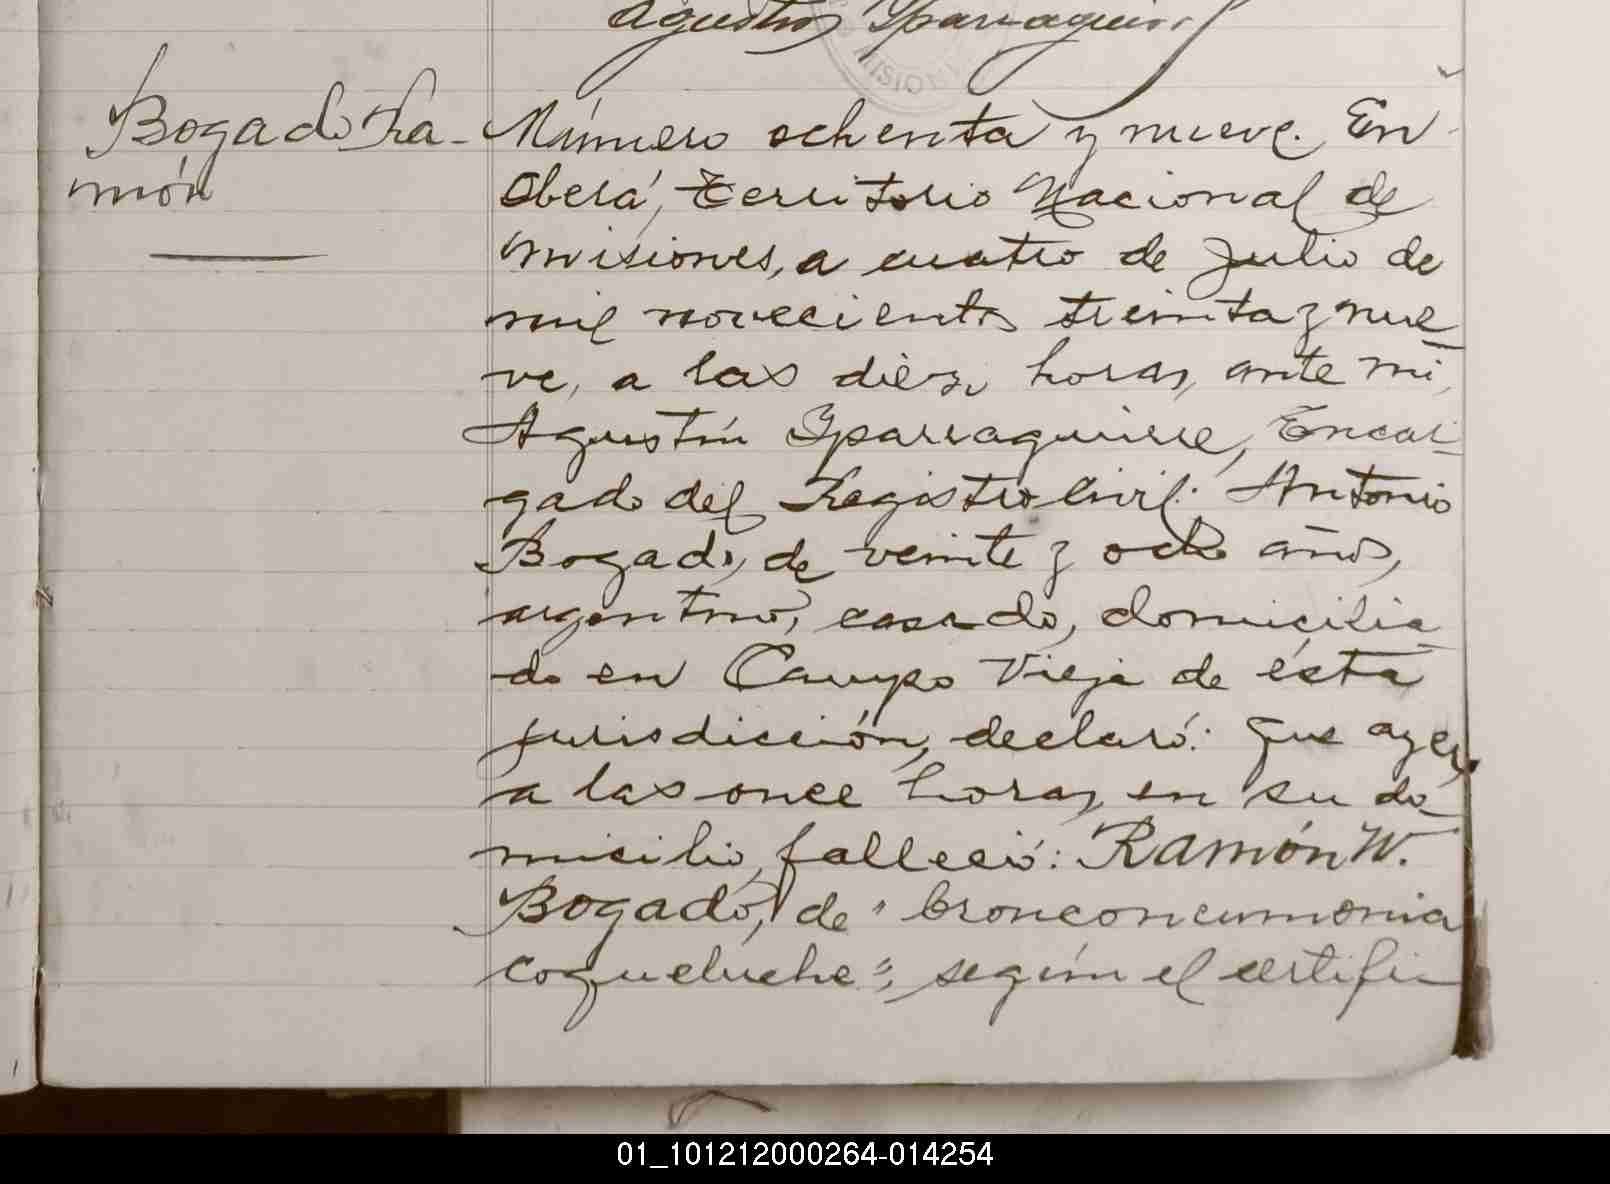 Agustín Yparraguirre
MISIONES
Bogado Ra-
món
Número ochenta y nueve. En
Oberá, Territorio Nacional de
Misiones, a cuatro de Julio de
mil novecientos treinta y nue
ve, a las diez horas, ante mí,
Agustín Yparraguirre, Encar
gado del Registro Civil: Antonio
Bogado, de veinte y ocho años,
argentino, casado, domicilia
do en Campo Vieja de ésta
jurisdicción, declaró: Que ayer,
a las once horas, en su do
micilio, falleció: Ramón W.
Bogado, de "bronconeumonia
coqueluche", según el certifi
01_101212000264-014254